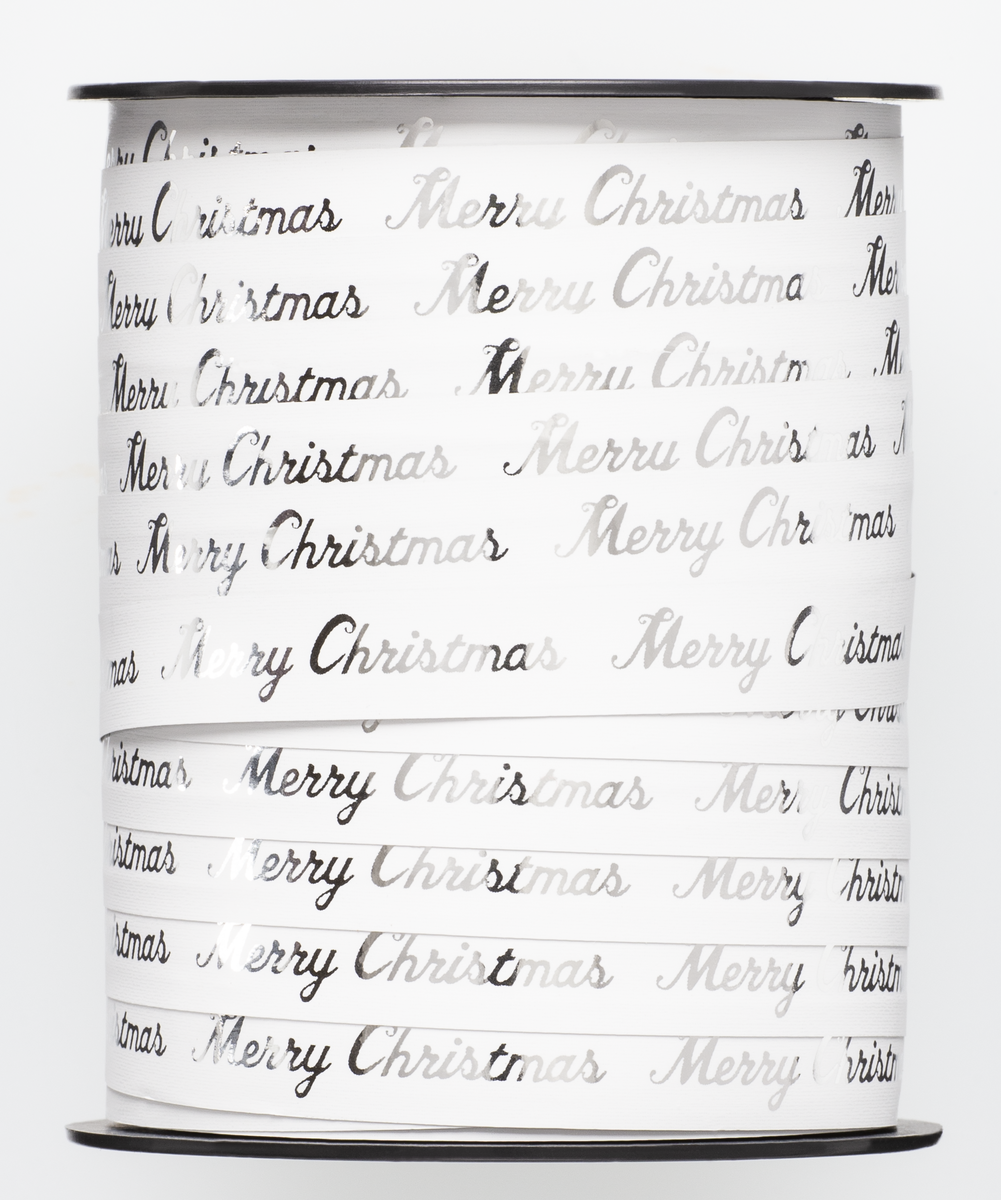 Merry Christmas Merry
Merry Christmas Merry Christmas Merry
Merry Christmas Merry Christmas
Merry Christmas Merry Christmas
Merry Christmas Merry Christmas
Merry Christmas Merry Christmas
Merry Christmas Merry Christmas
Christmas Merry Christmas Merry Christ
Christmas Merry Christmas Merry Christm
stmas Merry Christmas Merry Christm
stmas Merry Christmas Merry Christm